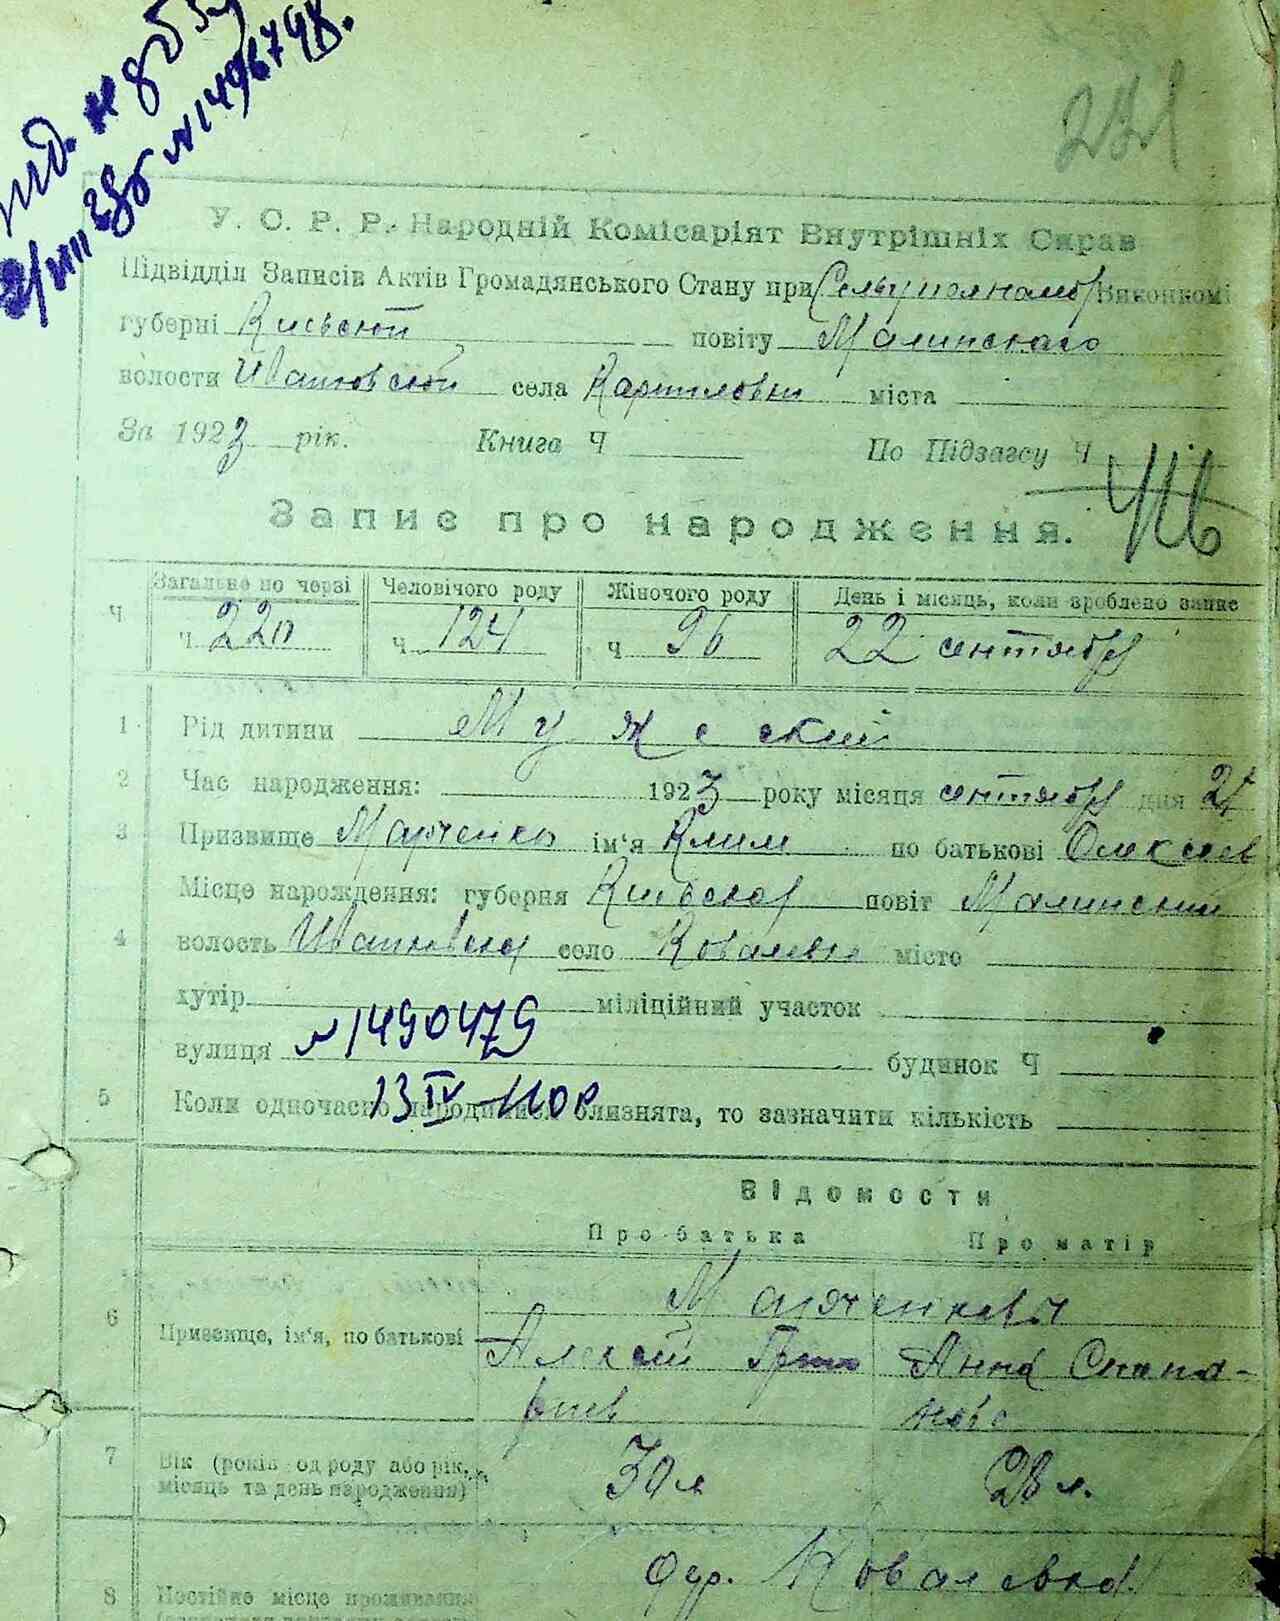 № 149674 ЧК.
231
У. С. Р. Р. Народній Комісаріят Внутрішніх Справ
Підвідділ Записів Актів Громадянського Стану при Виконкомі
губерні Киевской повіту Малинскаго
волости Ивановской села Карпиловки міста
За 1923 рік. Книга Ч По Підзагсу Ч
Запис про народження.
Загальне по черзі Человічого роду Жіночого роду День і місяць, коли зроблено запис
Ч ч 220 ч 124 ч 96 22 сентября
1 Рід дитини Мужеский
2 Час народження: 1923 року місяця сентября дня 21
3 Призвище Марченко ім'я Клим по батькові Олексеев
Місце нарождення: губерня Киевская повіт Малинский
4 волость Ивановская село Ковалевка місто
хутір міліційний участок
вулиця №1490479 будинок Ч
13 IV
5 Коли одночасно народилися близнята, то зазначити кількість
Відомости
Про батька Про матір
6 Призвище, ім'я, по батькові Марченкови
Алексей Анна Степа-
нова
7 Вік (років од роду або рік, місяць та день народження) 30 л 28 л.
8 Постійне місце проживання дер. Ковалевка